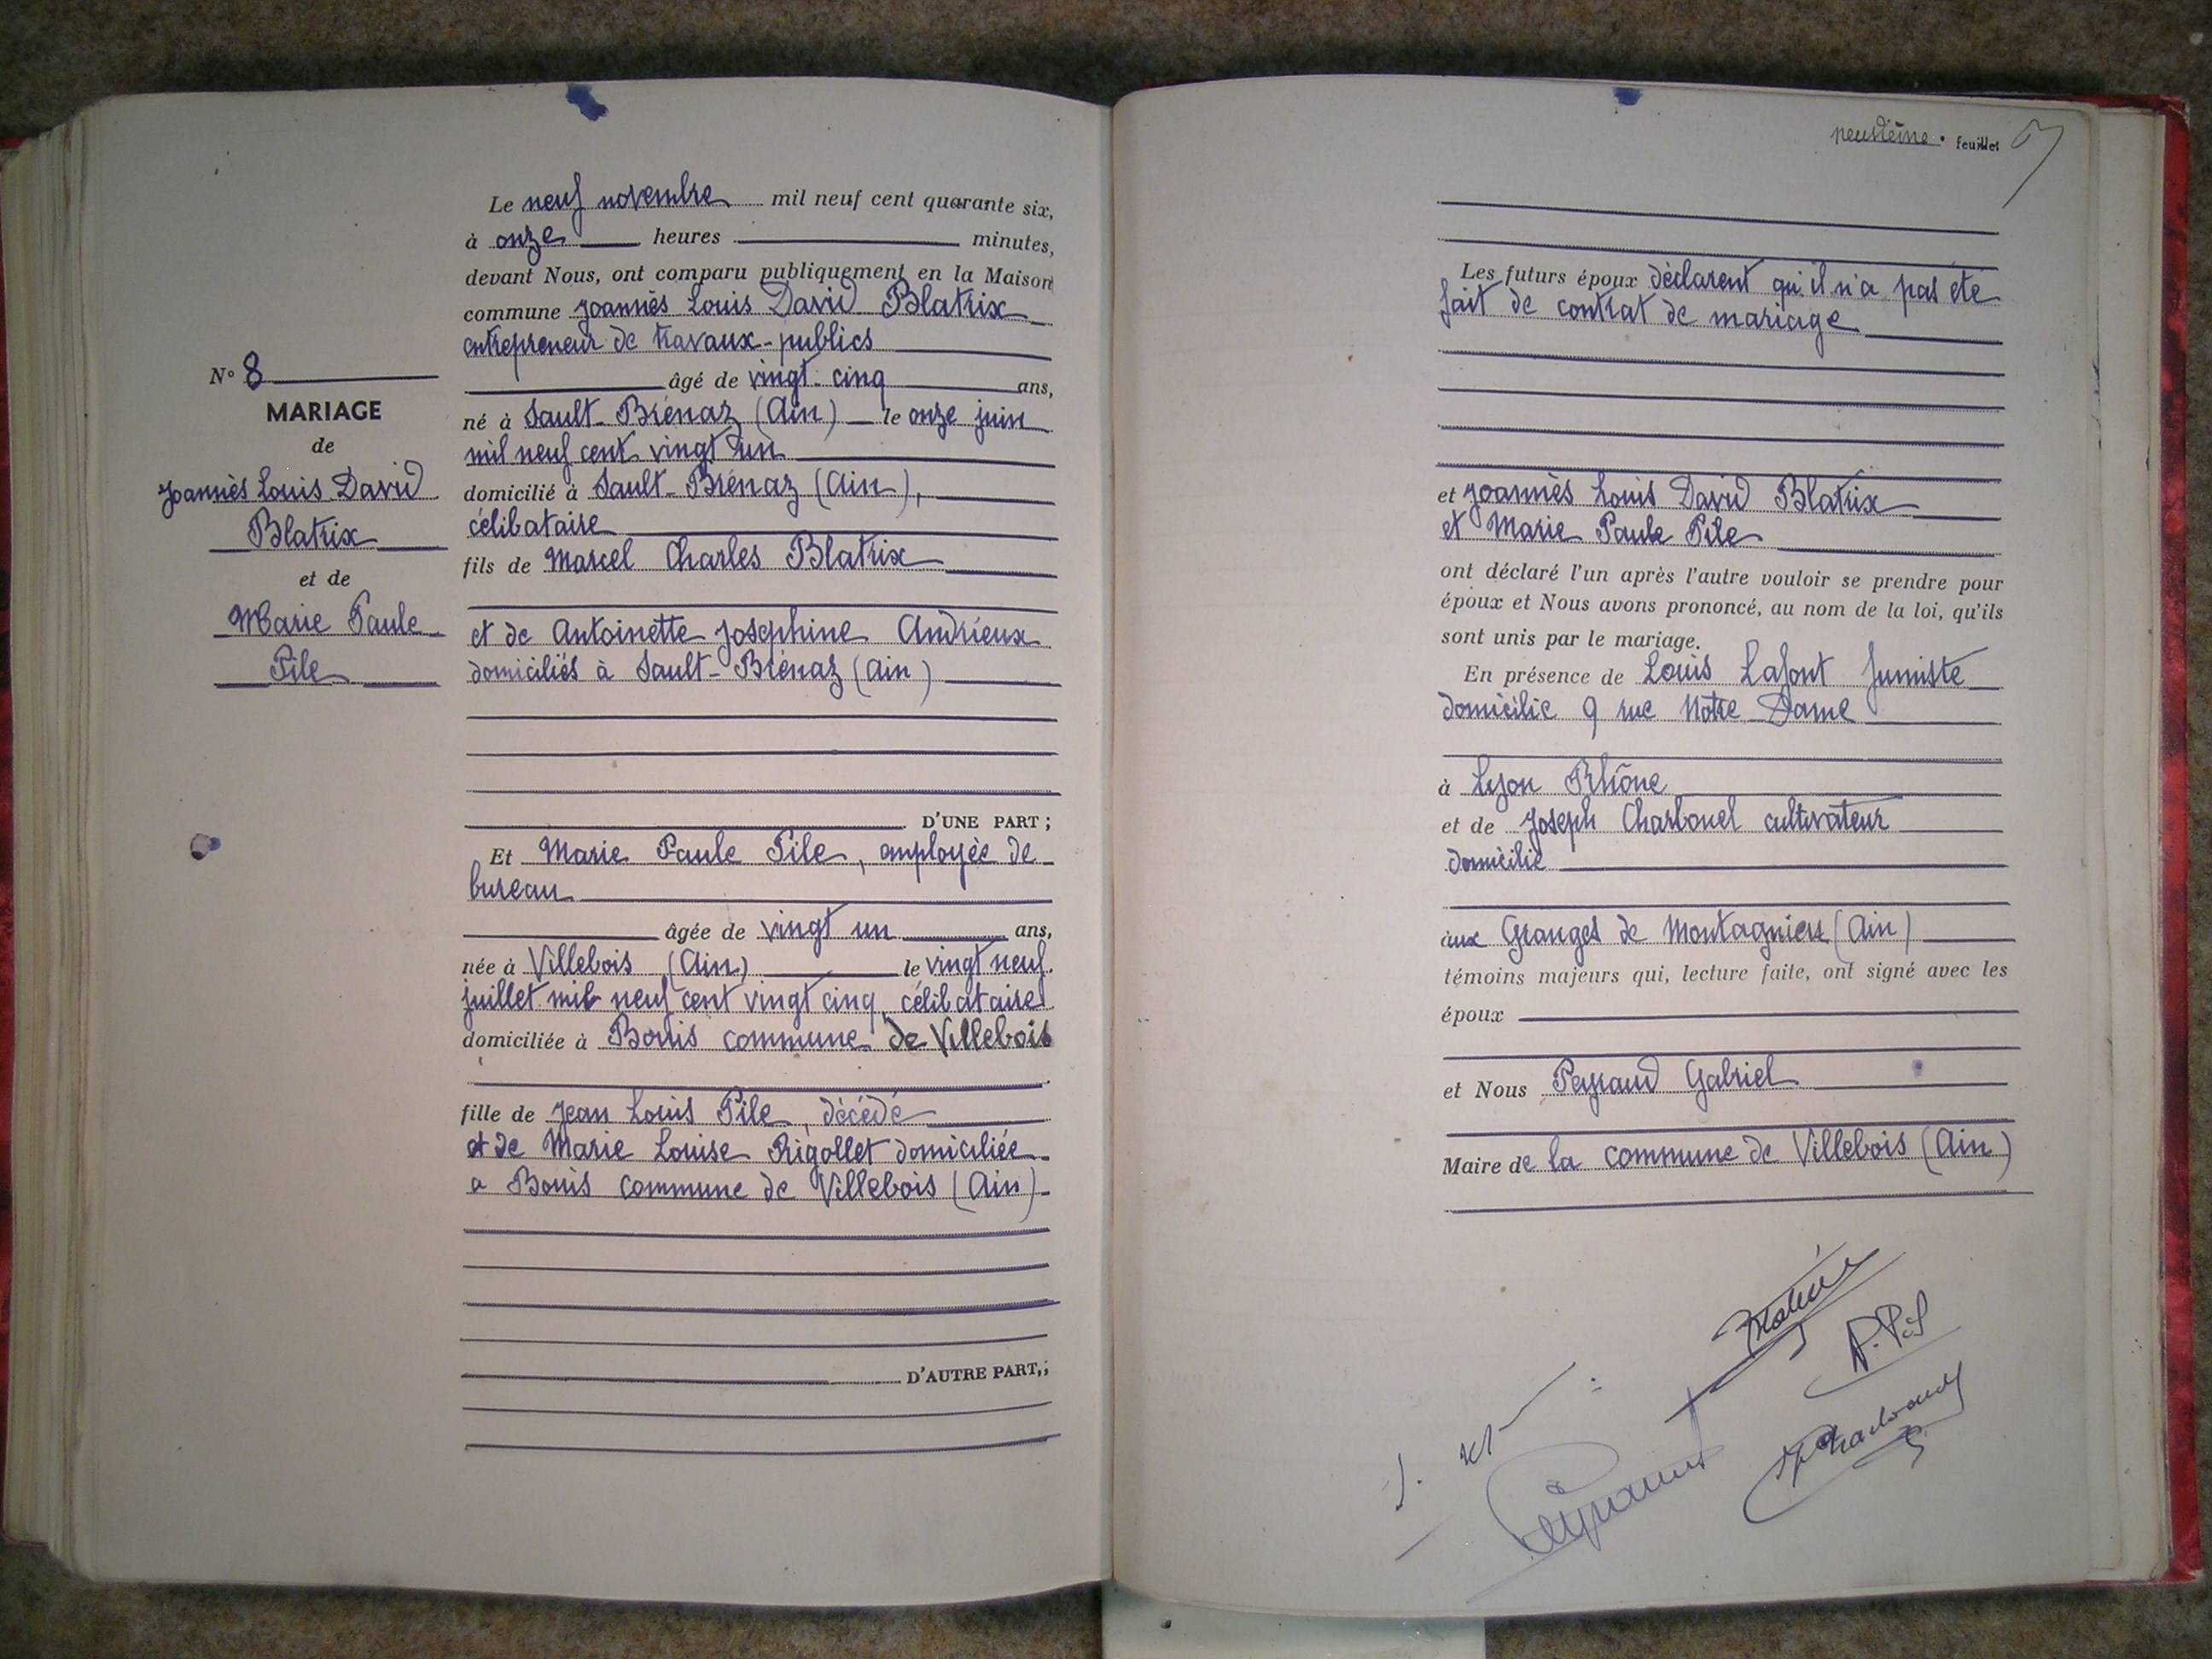 Le neuf novembre mil neuf cent quarante six,
à onze heures minutes,
devant Nous, ont comparu publiquement en la Maison
commune Joannès Louis David Blatrix
entrepreneur de travaux-publics
âgé de vingt-cinq ans,
né à Sault-Brénaz (Ain) le onze juin
mil neuf cent vingt un
domicilié à Sault-Brénaz (Ain),
célibataire
fils de Marcel Charles Blatrix
et de Antoinette Joséphine Andrieux
domiciliés à Sault-Brénaz (Ain)
D'UNE PART ;
Et Marie Paule Pile, employée de
bureau
âgée de vingt un ans,
née à Villebois (Ain) le vingt neuf
juillet mil neuf cent vingt cinq, célibataire
domiciliée à Bouis commune de Villebois
fille de Jean Louis Pile, décédé
et de Marie Louise Rigollet domiciliée
a Bouis commune de Villebois (Ain)
D'AUTRE PART,;
N° 8
MARIAGE
de
Joannès Louis David
Blatrix
et de
Marie Paule
Pile
neuvième feuillet
Les futurs époux déclarent qu'il n'a pas été
fait de contrat de mariage
et Joannès Louis David Blatrix
et Marie Paule Pile
ont déclaré l'un après l'autre vouloir se prendre pour
époux et Nous avons prononcé, au nom de la loi, qu'ils
sont unis par le mariage.
En présence de Louis Lafont fumiste
domicilié 9 rue Notre Dame
à Lyon Rhône
et de Joseph Charbonel cultivateur
domicilié
aux Granges de Montagnieu (Ain)
témoins majeurs qui, lecture faite, ont signé avec les
époux
et Nous Peyraud Gabriel
Maire de la commune de Villebois (Ain)
Blatrix
P. Pile
Peyraud